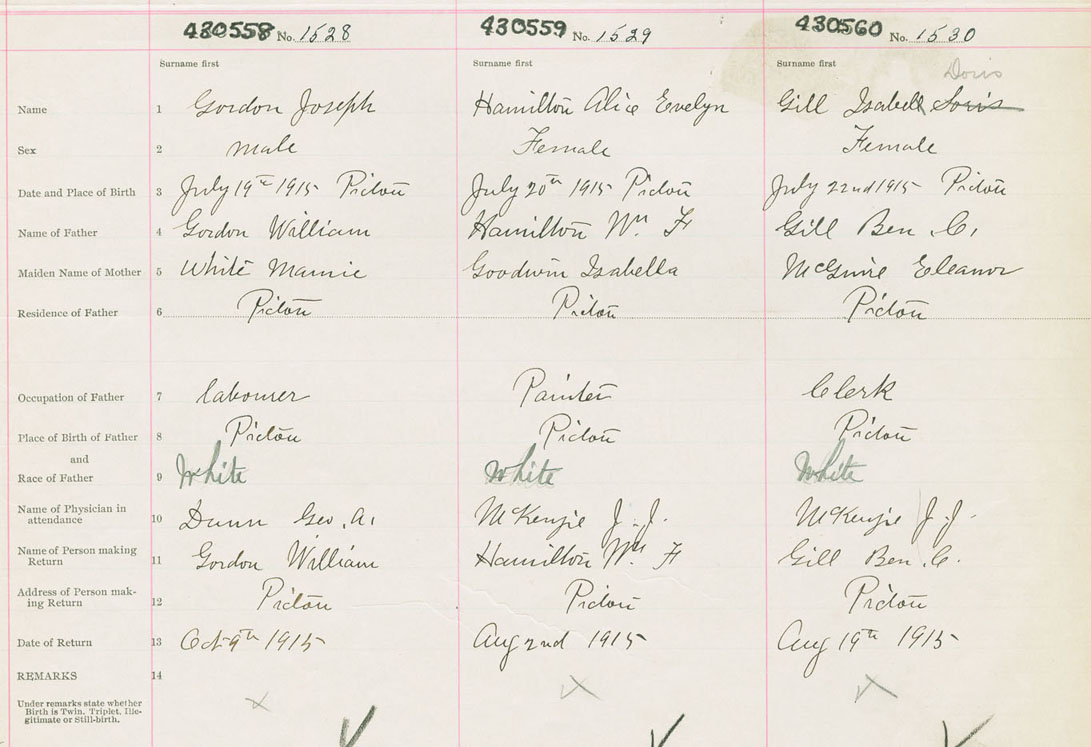 430558 No. 1528 430559 No. 1529 430560 No. 1530
Surname first Surname first Surname first
Doris
Name 1 Gordon Joseph Hamilton Alice Evelyn Gill Isabell Soris
Sex 2 male Female Female
Date and Place of Birth 3 July 19th 1915 Picton July 20th 1915 Picton July 22nd 1915 Picton
Name of Father 4 Gordon William Hamilton Wm. F Gill Ben. C.
Maiden Name of Mother 5 White Mamie Goodwin Isabella McGuire Eleanor
Residence of Father 6 Picton Picton Picton
Occupation of Father 7 labourer Painter Clerk
Place of Birth of Father 8 Picton Picton Picton
and
Race of Father 9 White White White
Name of Physician in
attendance 10 Dunn Geo. A. McKenzie J. J. McKenzie J. J.
Name of Person making
Return 11 Gordon William Hamilton Wm. F Gill Ben. C.
Address of Person mak-
ing Return 12 Picton Picton Picton
Date of Return 13 Oct 9th 1915 Aug 2nd 1915 Aug 19th 1915
REMARKS 14
Under remarks state whether
Birth is Twin, Triplet, Ille-
gitimate or Still-birth.